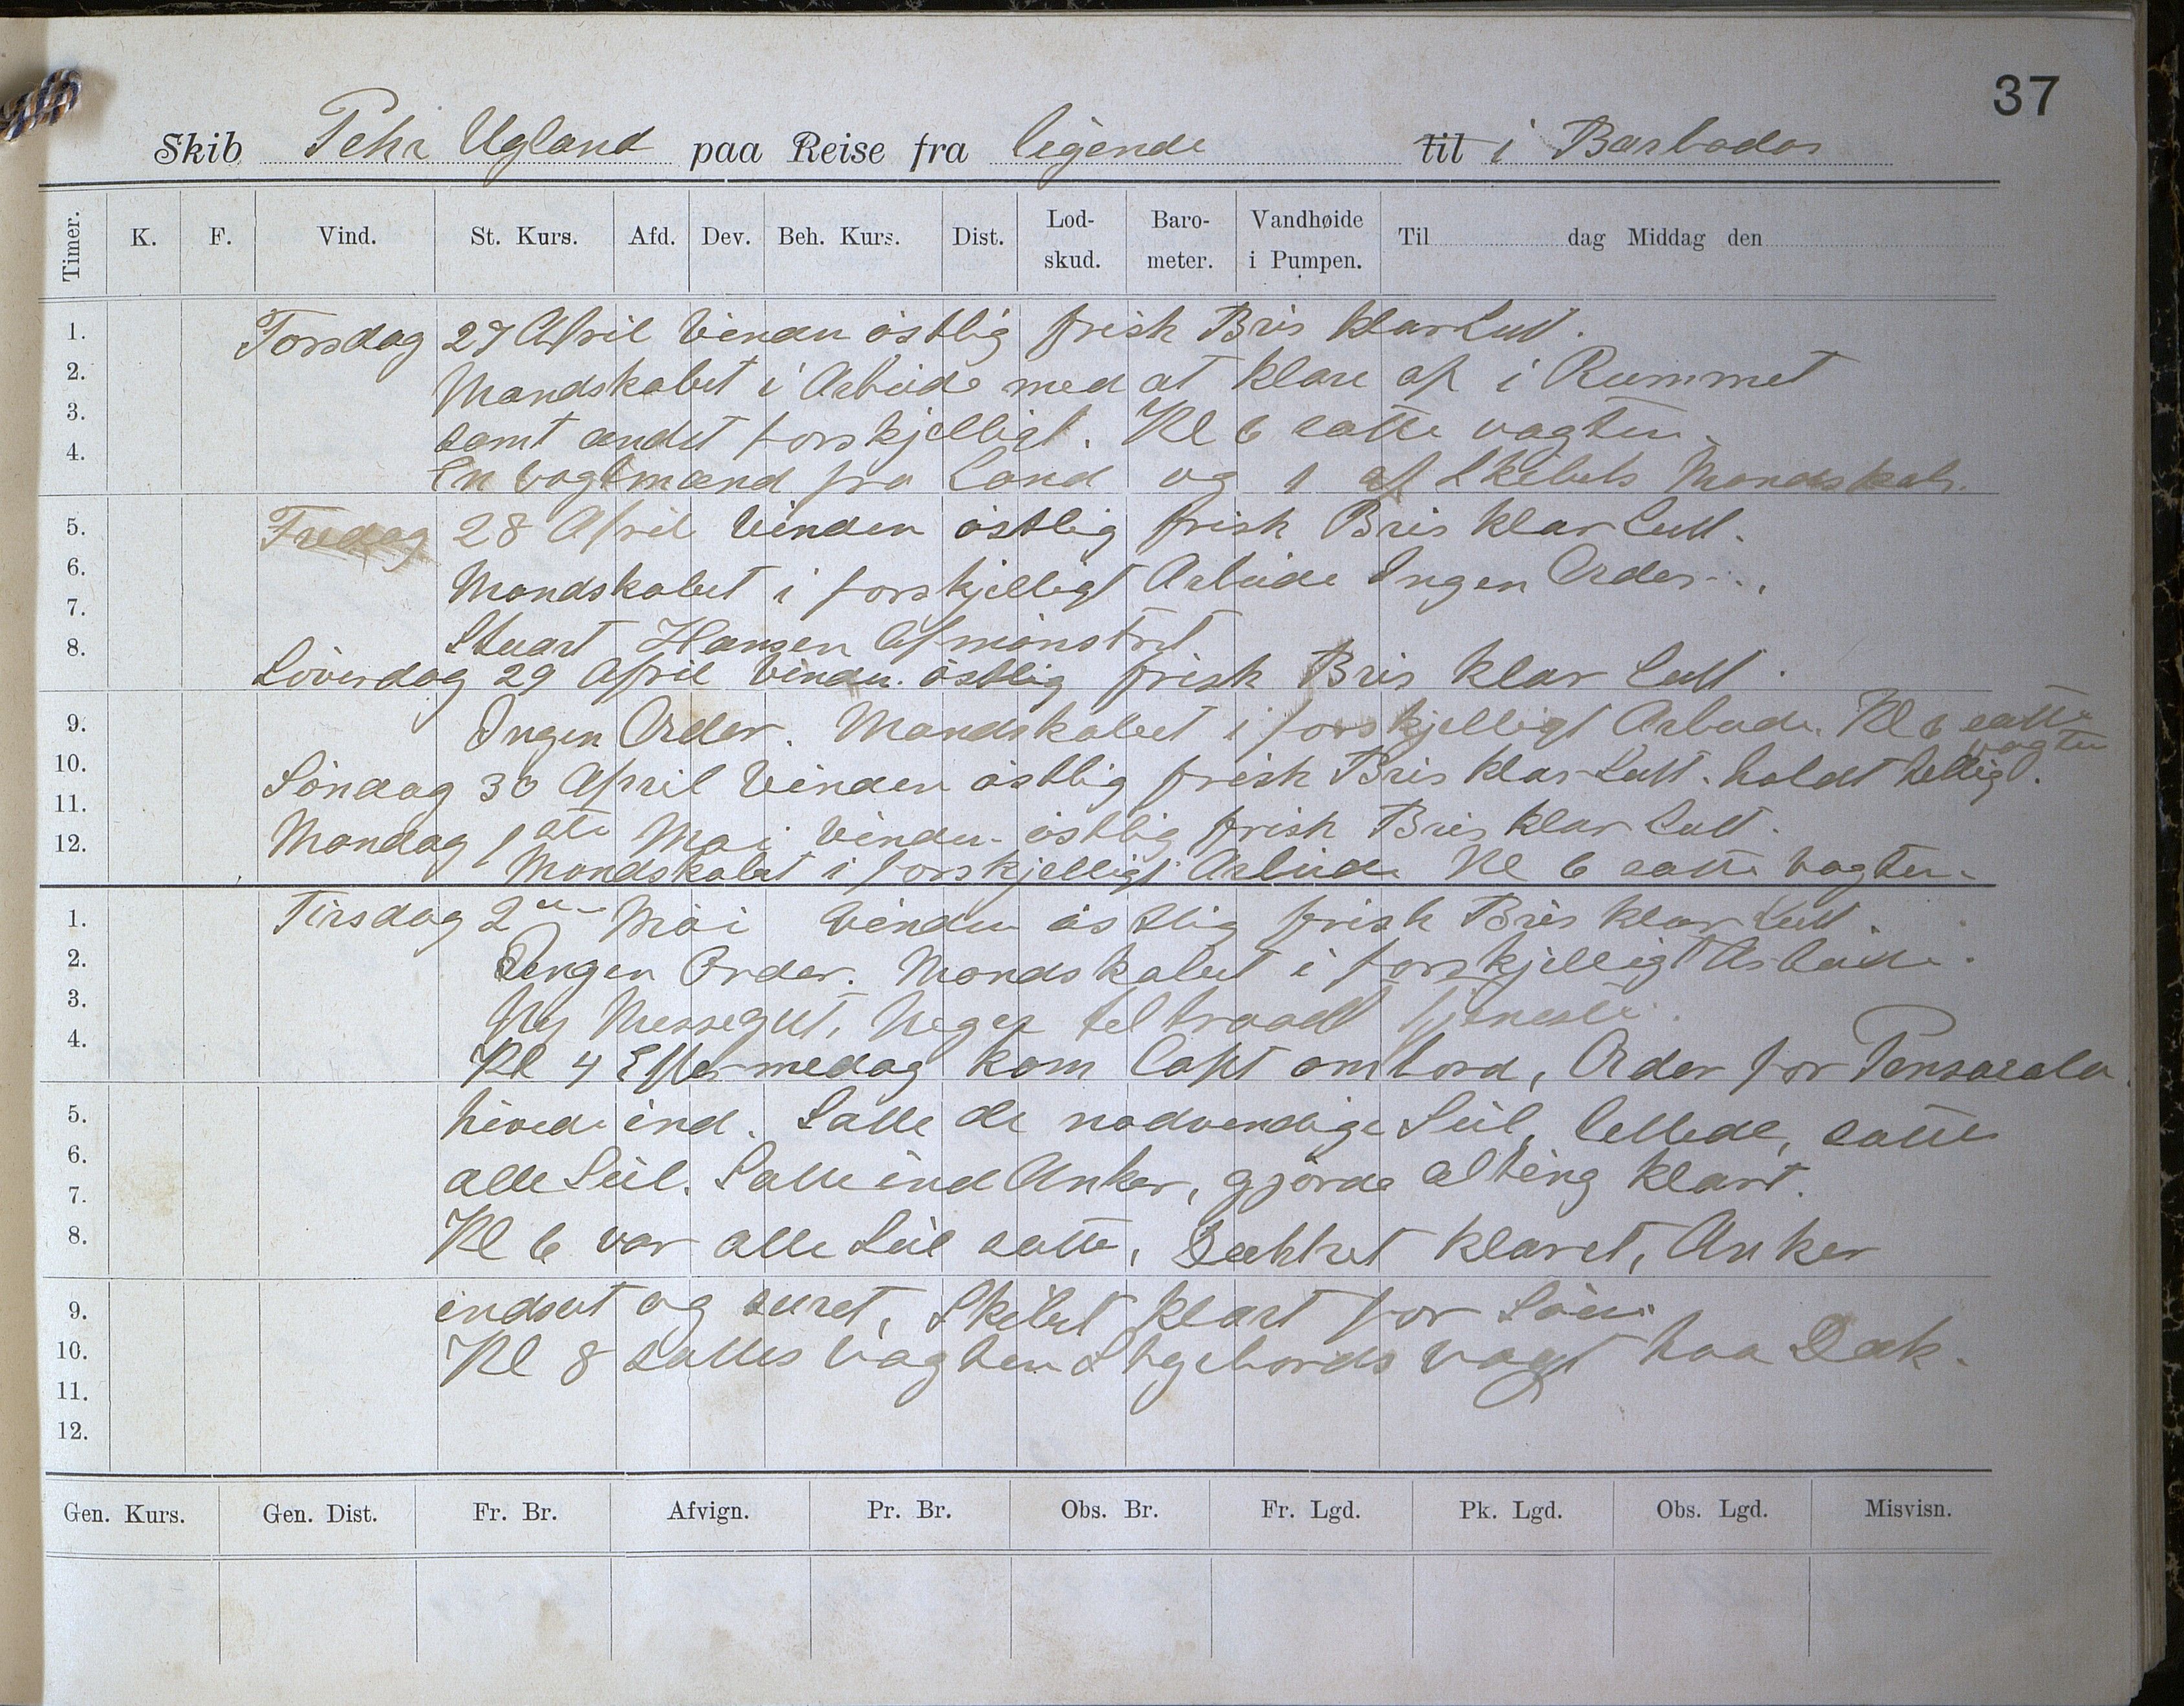 37
Skib Pehr Ugland paa Reise fra ligende til i Barbados
Timer. K. F. Vind. St. Kurs. Afd. Dev. Beh. Kurs. Dist. Lod-skud. Baro-meter. Vandhøide i Pumpen. Til dag Middag den
1. Torsdag 27 April Vinden östlig frisk Bris klar Luft.
2. Mandskabet i Arbeide med at klare op i Rummet
3. samt andet forskjelligt. Kl 6 satte vagten.
4. En vagtmand fra Land og 1 af Skibets Mandskab.
5. Fredag 28 April Vinden östlig frisk Bris klar Luft.
6. Mandskabet i forskjelligt Arbeide Ingen Order.
7. Stuart Hansen Afmönstret
8. Löverdag 29 April Vinden östlig frisk Bris klar Luft.
9. Ingen Order. Mandskabet i forskjelligt Arbeide. Kl 6 satte vagten
10. Söndag 30 April Vinden östlig frisk Bris klar Luft. holdt helligt.
11. Mandag 1ste Mai Vinden östlig frisk Bris klar Luft.
12. Mandskabet i forskjelligt Arbeide Kl 6 satte vagten.
1. Tirsdag 2den Mai Vinden östlig frisk Bris klar Luft.
2. Ingen Order. Mandskabet i forskjelligt Arbeide.
3. Ny Messegut, Neger tiltraadt tjeneste.
4. Kl 4 Eftermedag kom Capt ombord, Order for Pensacola.
5. hivede ind. Satte de nodvendige Seil, lettede, satte
6. alle Seil. Satte ind Anker, gjorde alting klart.
7.
8. Kl 6 var alle Seil satte, Dækket klaret, Anker
9. indsat og suret, Skibet klart for Söen
10. Kl 8 sattes Vagten Stgebords vagt paa Dæk.
11.
12.
Gen. Kurs. Gen. Dist. Fr. Br. Afvign. Pr. Br. Obs. Br. Fr. Lgd. Pk. Lgd. Obs. Lgd. Misvisn.